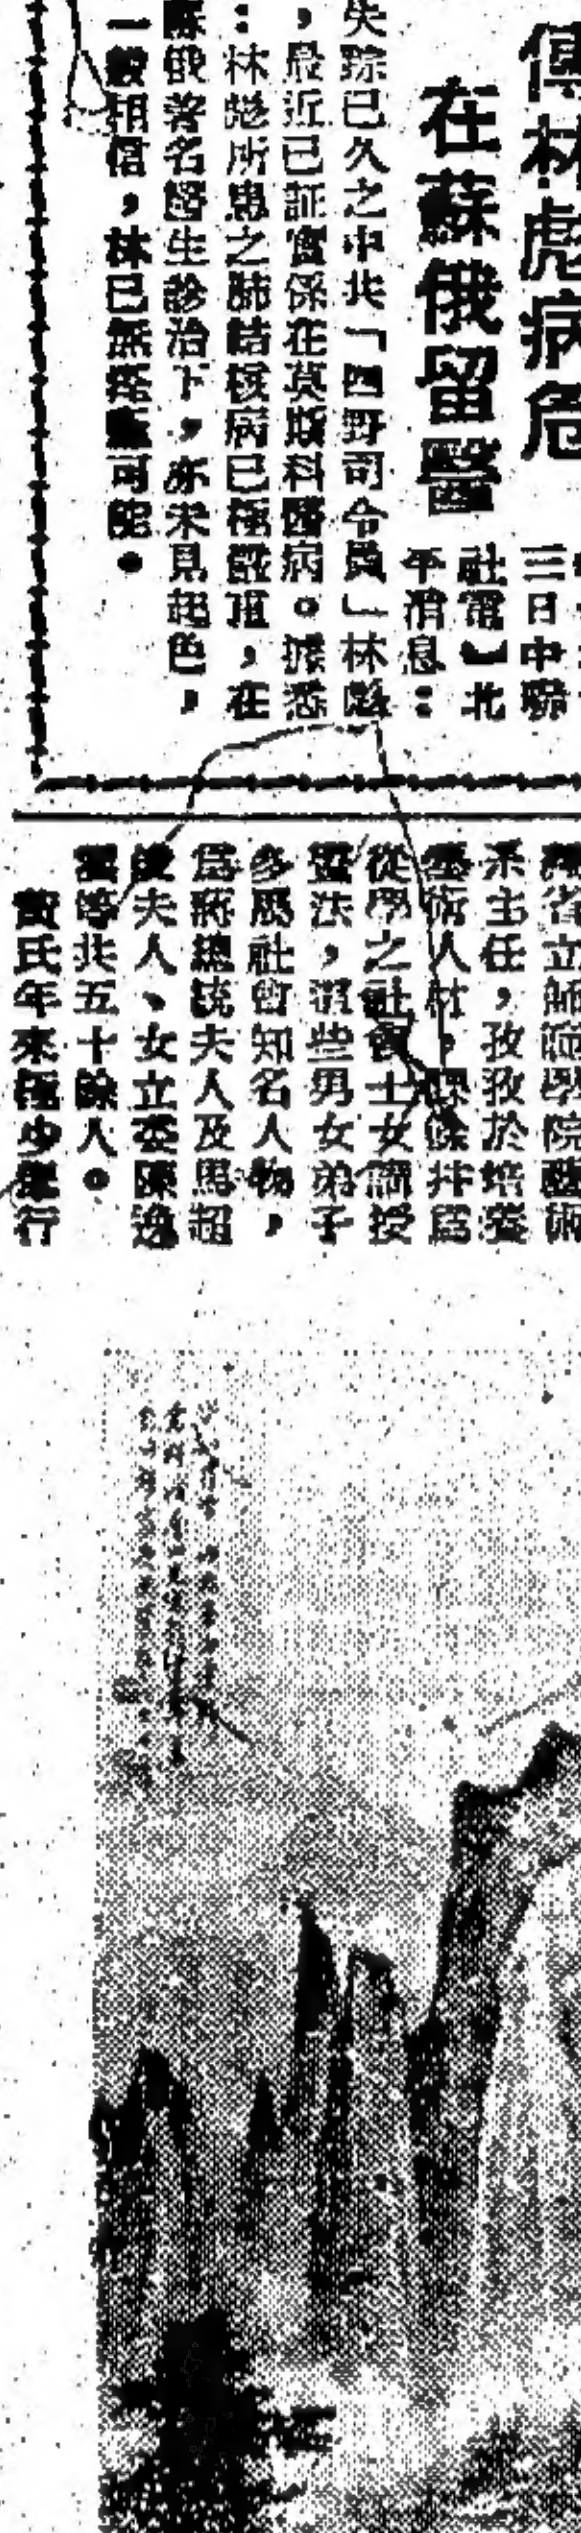 傳林彪病危
在蘇俄留醫
三日中聯
社電】北
平消息：
失踪已久之中共「四野司令員」林彪
，最近已証實係在莫斯科醫病。據悉
：林彪所患之肺結核病已極嚴重，在
蘇俄著名醫生診治下，亦未見起色，
一般相信，林已無痊癒可能。
省立師範學院藝術
系主任，孜孜於培養
藝術人材，課餘并爲
從學之社會士女簡授
畫法，這些男女弟子
多屬社會知名人物，
爲蔣總統夫人及馬超
俊夫人、女立委陳逸
雲等共五十餘人。
黃氏年來極少舉行